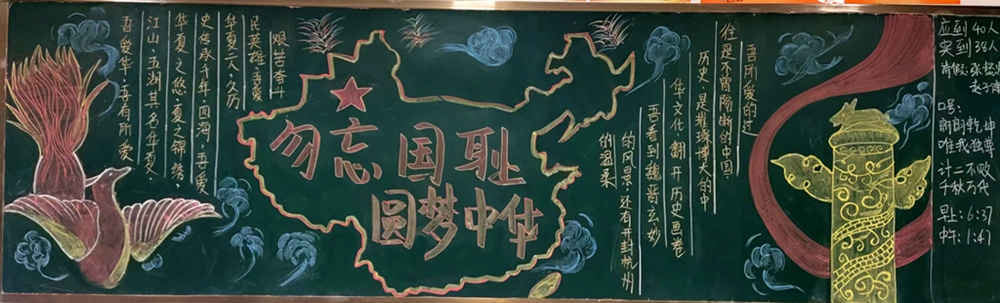 勿忘国耻
圆梦中华
吾所爱的过
往是不曾隔断的中国
历史,是璀璨博大的中
华文化 翻开历史画卷
吾看到魏晋玄妙
的风景,还有开封杭州
的温柔
艰苦奋斗
民英雄,吾爱
华夏之人,久历
史传承千年。四海,吾爱
华夏之悠,爱之锦绣,
江山,五湖其名华夏。
吾爱华,吾有所爱
应到40人
实到38人
请假:张
赵子
口号:
朗朗乾坤
唯我独尊
计二不败
千秋万代
早上:6:37
中午:1:47